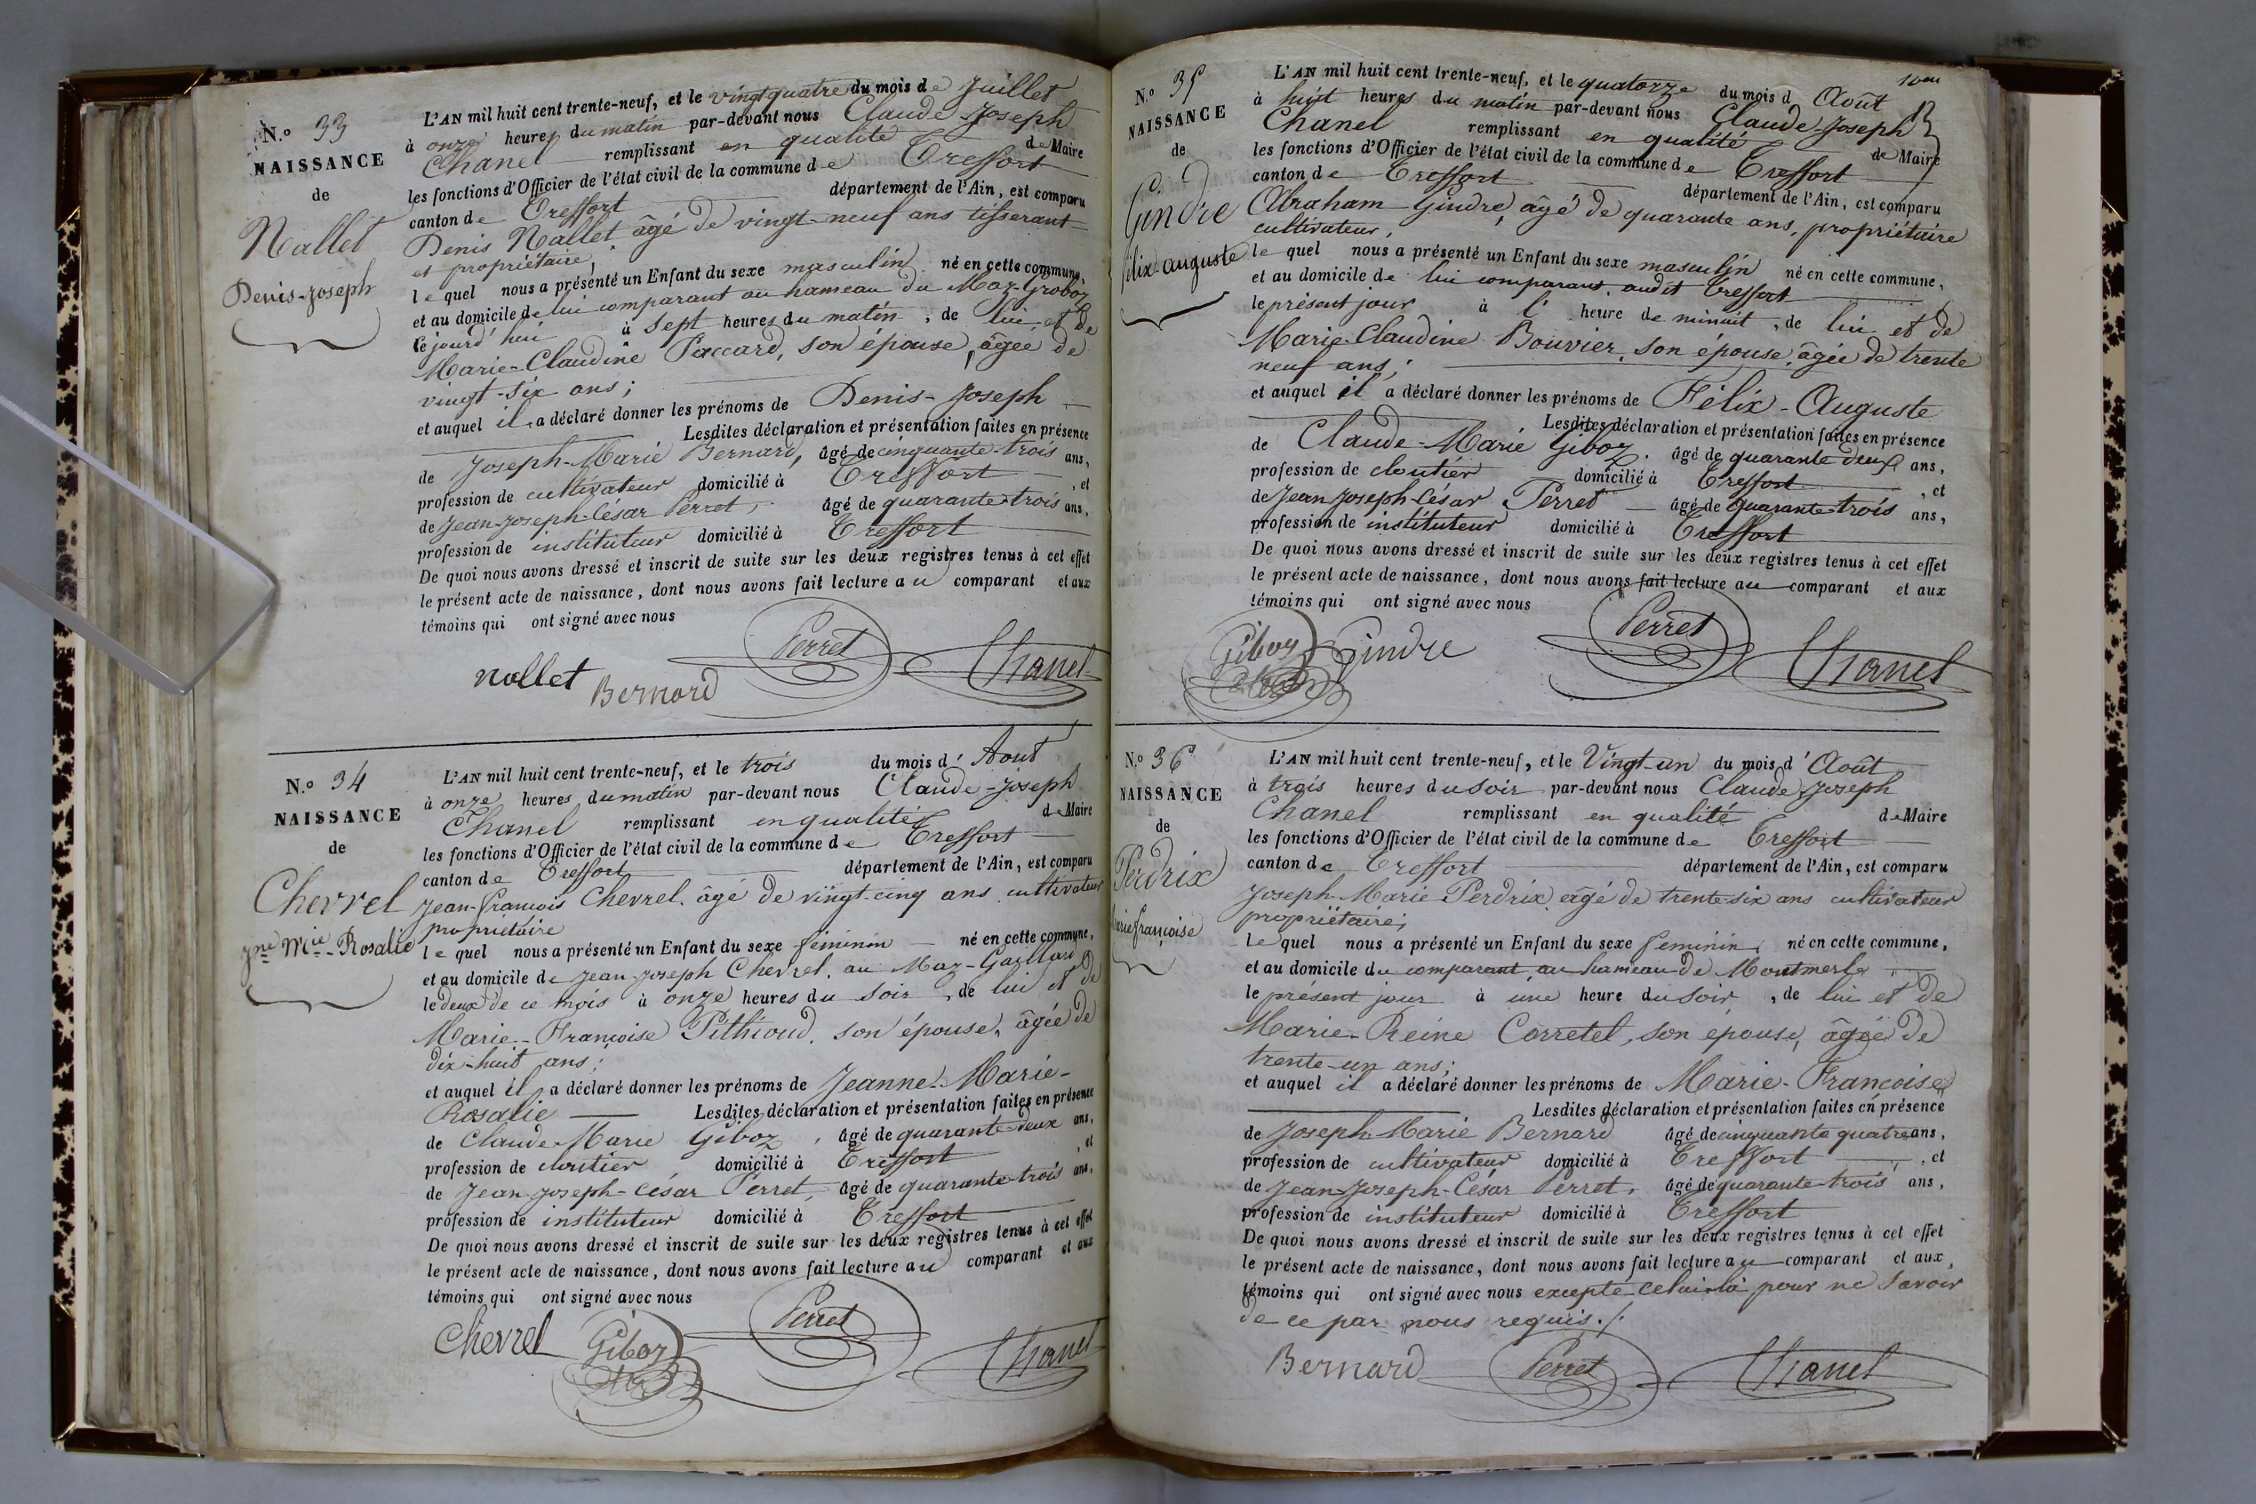 N.º 33
NAISSANCE
de
Nallet
Denis-Joseph
L'AN mil huit cent trente-neuf, et le vingt quatre du mois de Juillet
à onze heures du matin par-devant nous Claude-Joseph
Chanel remplissant en qualité de Maire
les fonctions d'Officier de l'état civil de la commune de Treffort
canton de Treffort département de l'Ain, est comparu
Denis Nallet, âgé de vingt-neuf ans tisserant
et propriétaire,
le quel nous a présenté un Enfant du sexe masculin né en cette commune,
et au domicile de lui comparant au hameau du Maz-Groboz
le jourd'hui à sept heures du matin, de lui et de
Marie-Claudine Paccard, son épouse, âgée de
vingt-six ans;
et auquel il a déclaré donner les prénoms de Denis-Joseph
Lesdites déclaration et présentation faites en présence
de Joseph-Marie Bernard, âgé de cinquante-trois ans,
profession de cultivateur domicilié à Treffort, et
de Jean-Joseph-César Perret, âgé de quarante-trois ans,
profession de instituteur domicilié à Treffort
De quoi nous avons dressé et inscrit de suite sur les deux registres tenus à cet effet
le présent acte de naissance, dont nous avons fait lecture au comparant et aux
témoins qui ont signé avec nous
nallet Bernard Perret Chanel
N.º 34
NAISSANCE
de
Chevrel
Jne Mie-Rosalie
L'AN mil huit cent trente-neuf, et le trois du mois d'Aout
à onze heures du matin par-devant nous Claude-Joseph
Chanel remplissant en qualité de Maire
les fonctions d'Officier de l'état civil de la commune de Treffort
canton de Treffort département de l'Ain, est comparu
Jean-françois Chevrel, âgé de vingt-cinq ans cultivateur
propriétaire
le quel nous a présenté un Enfant du sexe féminin né en cette commune,
et au domicile de Jean-Joseph Chevrel, au Maz-Gaillard
le deux de ce mois à onze heures du soir, de lui et de
Marie-Françoise Pithioud, son épouse, âgée de
dix-huit ans;
et auquel il a déclaré donner les prénoms de Jeanne-Marie-
Rosalie Lesdites déclaration et présentation faites en présence
de Claude-Marie Giboz, âgé de quarante-deux ans,
profession de cloutier, domicilié à Treffort, et
de Jean-Joseph-César Perret, âgé de quarante-trois ans,
profession de instituteur domicilié à Treffort
De quoi nous avons dressé et inscrit de suite sur les deux registres tenus à cet effet
le présent acte de naissance, dont nous avons fait lecture au comparant et aux
témoins qui ont signé avec nous
Chevrel Giboz Perret Chanel
N.º 35
NAISSANCE
de
Gindre
félix-auguste
L'AN mil huit cent trente-neuf, et le quatorze du mois d Août
à huit heures du matin par-devant nous Claude-Joseph
Chanel remplissant en qualité de Maire
les fonctions d'Officier de l'état civil de la commune de Treffort
canton de Treffort département de l'Ain, est comparu
Abraham Gindre, âgé de quarante ans, propriétaire
cultivateur,
le quel nous a présenté un Enfant du sexe masculin né en cette commune,
et au domicile de lui comparant, audit Treffort
le présent jour à l' heure de minuit, de lui et de
Marie-Claudine Bouvier, son épouse, âgée de trente
neuf ans;
et auquel il a déclaré donner les prénoms de Félix-Auguste
Lesdites déclaration et présentation faites en présence
de Claude-Marie Giboz, âgé de quarante deux ans,
profession de cloutier domicilié à Treffort, et
de Jean-Joseph-César Perret âgé de quarante-trois ans,
profession de instituteur domicilié à Treffort
De quoi nous avons dressé et inscrit de suite sur les deux registres tenus à cet effet
le présent acte de naissance, dont nous avons fait lecture au comparant et aux
témoins qui ont signé avec nous
Giboz Gindre Perret Chanel
N.º 36
NAISSANCE
de
Perdrix
Marie françoise
L'AN mil huit cent trente-neuf, et le Vingt-un du mois d'Août
à trois heures du soir par-devant nous Claude Joseph
Chanel remplissant en qualité de Maire
les fonctions d'Officier de l'état civil de la commune de Treffort
canton de Treffort département de l'Ain, est comparu
Joseph-Marie Perdrix âgé de trente-six ans cultivateur
propriétaire;
le quel nous a présenté un Enfant du sexe féminin, né en cette commune,
et au domicile du comparant, au hameau de Montmerle
le présent jour à une heure du soir, de lui et de
Marie-Reine Corretel, son épouse, âgée de
trente-un ans;
et auquel il a déclaré donner les prénoms de Marie-Françoise
Lesdites déclaration et présentation faites en présence
de Joseph Marie Bernard âgé de cinquante quatre ans,
profession de cultivateur domicilié à Treffort, et
de Jean-Joseph-César Perret, âgé de quarante-trois ans,
profession de instituteur domicilié à Treffort
De quoi nous avons dressé et inscrit de suite sur les deux registres tenus à cet effet
le présent acte de naissance, dont nous avons fait lecture au comparant et aux
témoins qui ont signé avec nous excepté celui-là pour ne savoir
de ce par nous requis./.
Bernard Perret Chanel